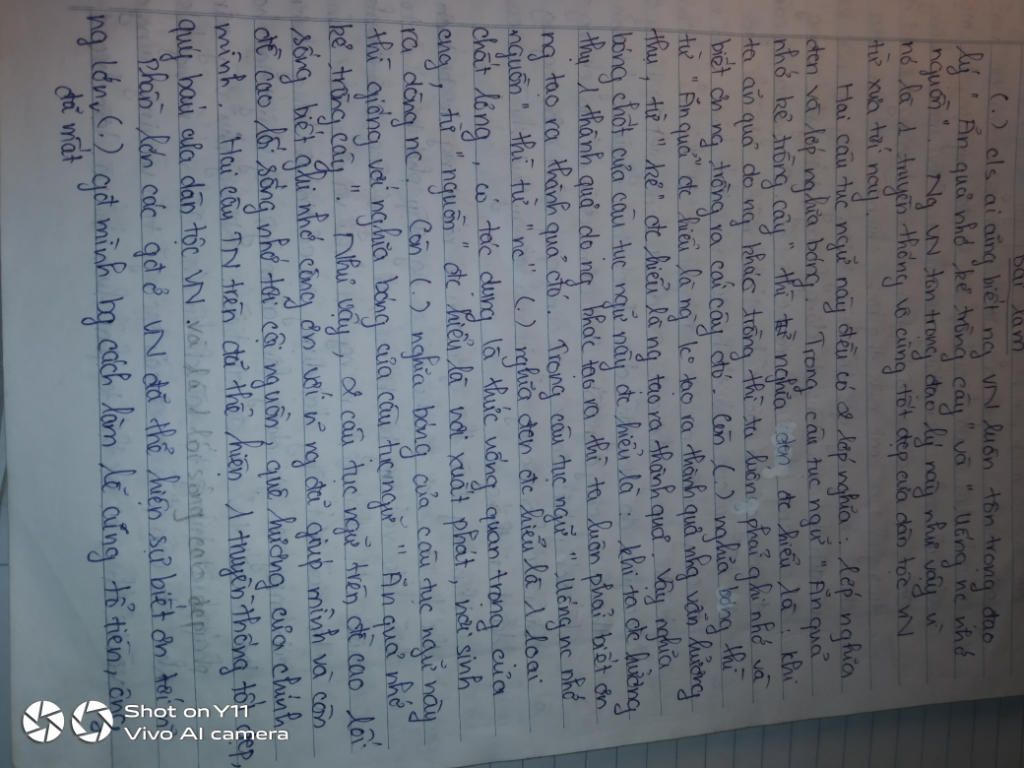 Bài làm
(.) c/s ai cũng biết ng VN luôn tôn trọng đạo
lý " Ăn quả nhớ kẻ trồng cây" và " Uống nc nhớ
nguồn". Ng VN tôn trọng đạo lý này như vậy vì
nó là 1 truyền thống vô cùng tốt đẹp của dân tộc VN
từ xưa tới nay.
Hai câu tục ngữ này đều có 2 lớp nghĩa: lớp nghĩa
đen và lớp nghĩa bóng. Trong câu tục ngữ " Ăn quả
nhớ kẻ trồng cây" thì nghĩa đen đc hiểu là: khi
ta ăn quả do ng khác trồng thì ta luôn phải ghi nhớ và
biết ơn ng trồng ra cái cây đó. Còn (.) nghĩa bóng thì
từ " Ăn quả" đc hiểu là ng k tạo ra thành quả nhg vẫn hưởng
thụ, từ " kẻ" đc hiểu là ng tạo ra thành quả. Vậy nghĩa
bóng chốt của câu tục ngữ này đc hiểu là: khi ta đc hưởng
thụ 1 thành quả do ng khác tạo ra thì ta luôn phải biết ơn
ng tạo ra thành quả đó. Trong câu tục ngữ " Uống nc nhớ
nguồn" thì từ " nc" (.) nghĩa đen đc hiểu là 1 loại
chất lỏng, có tác dụng là thức uống quan trọng của
cng, từ " nguồn" đc hiểu là nơi xuất phát, nơi sinh
ra dòng nc. Còn (.) nghĩa bóng của câu tục ngữ này
thì giống với nghĩa bóng của câu tục ngữ " Ăn quả nhớ
kẻ trồng cây". Như vậy, 2 câu tục ngữ trên đề cao lối
sống biết ghi nhớ công ơn với n ng đã giúp mình và còn
đề cao lối sống nhớ tới cội nguồn quê hương của chính
mình. Hai câu TN trên đã thể hiện 1 truyền thống tốt đẹp,
quý báu của dân tộc VN và là 1 lối sống
Phần lớn các gđ ở VN đã thể hiện sự biết ơn tới
ng lớn (.) gđ mình bg cách làm lễ cúng tổ tiên, ông
đã mất
Shot on Y11
Vivo AI camera